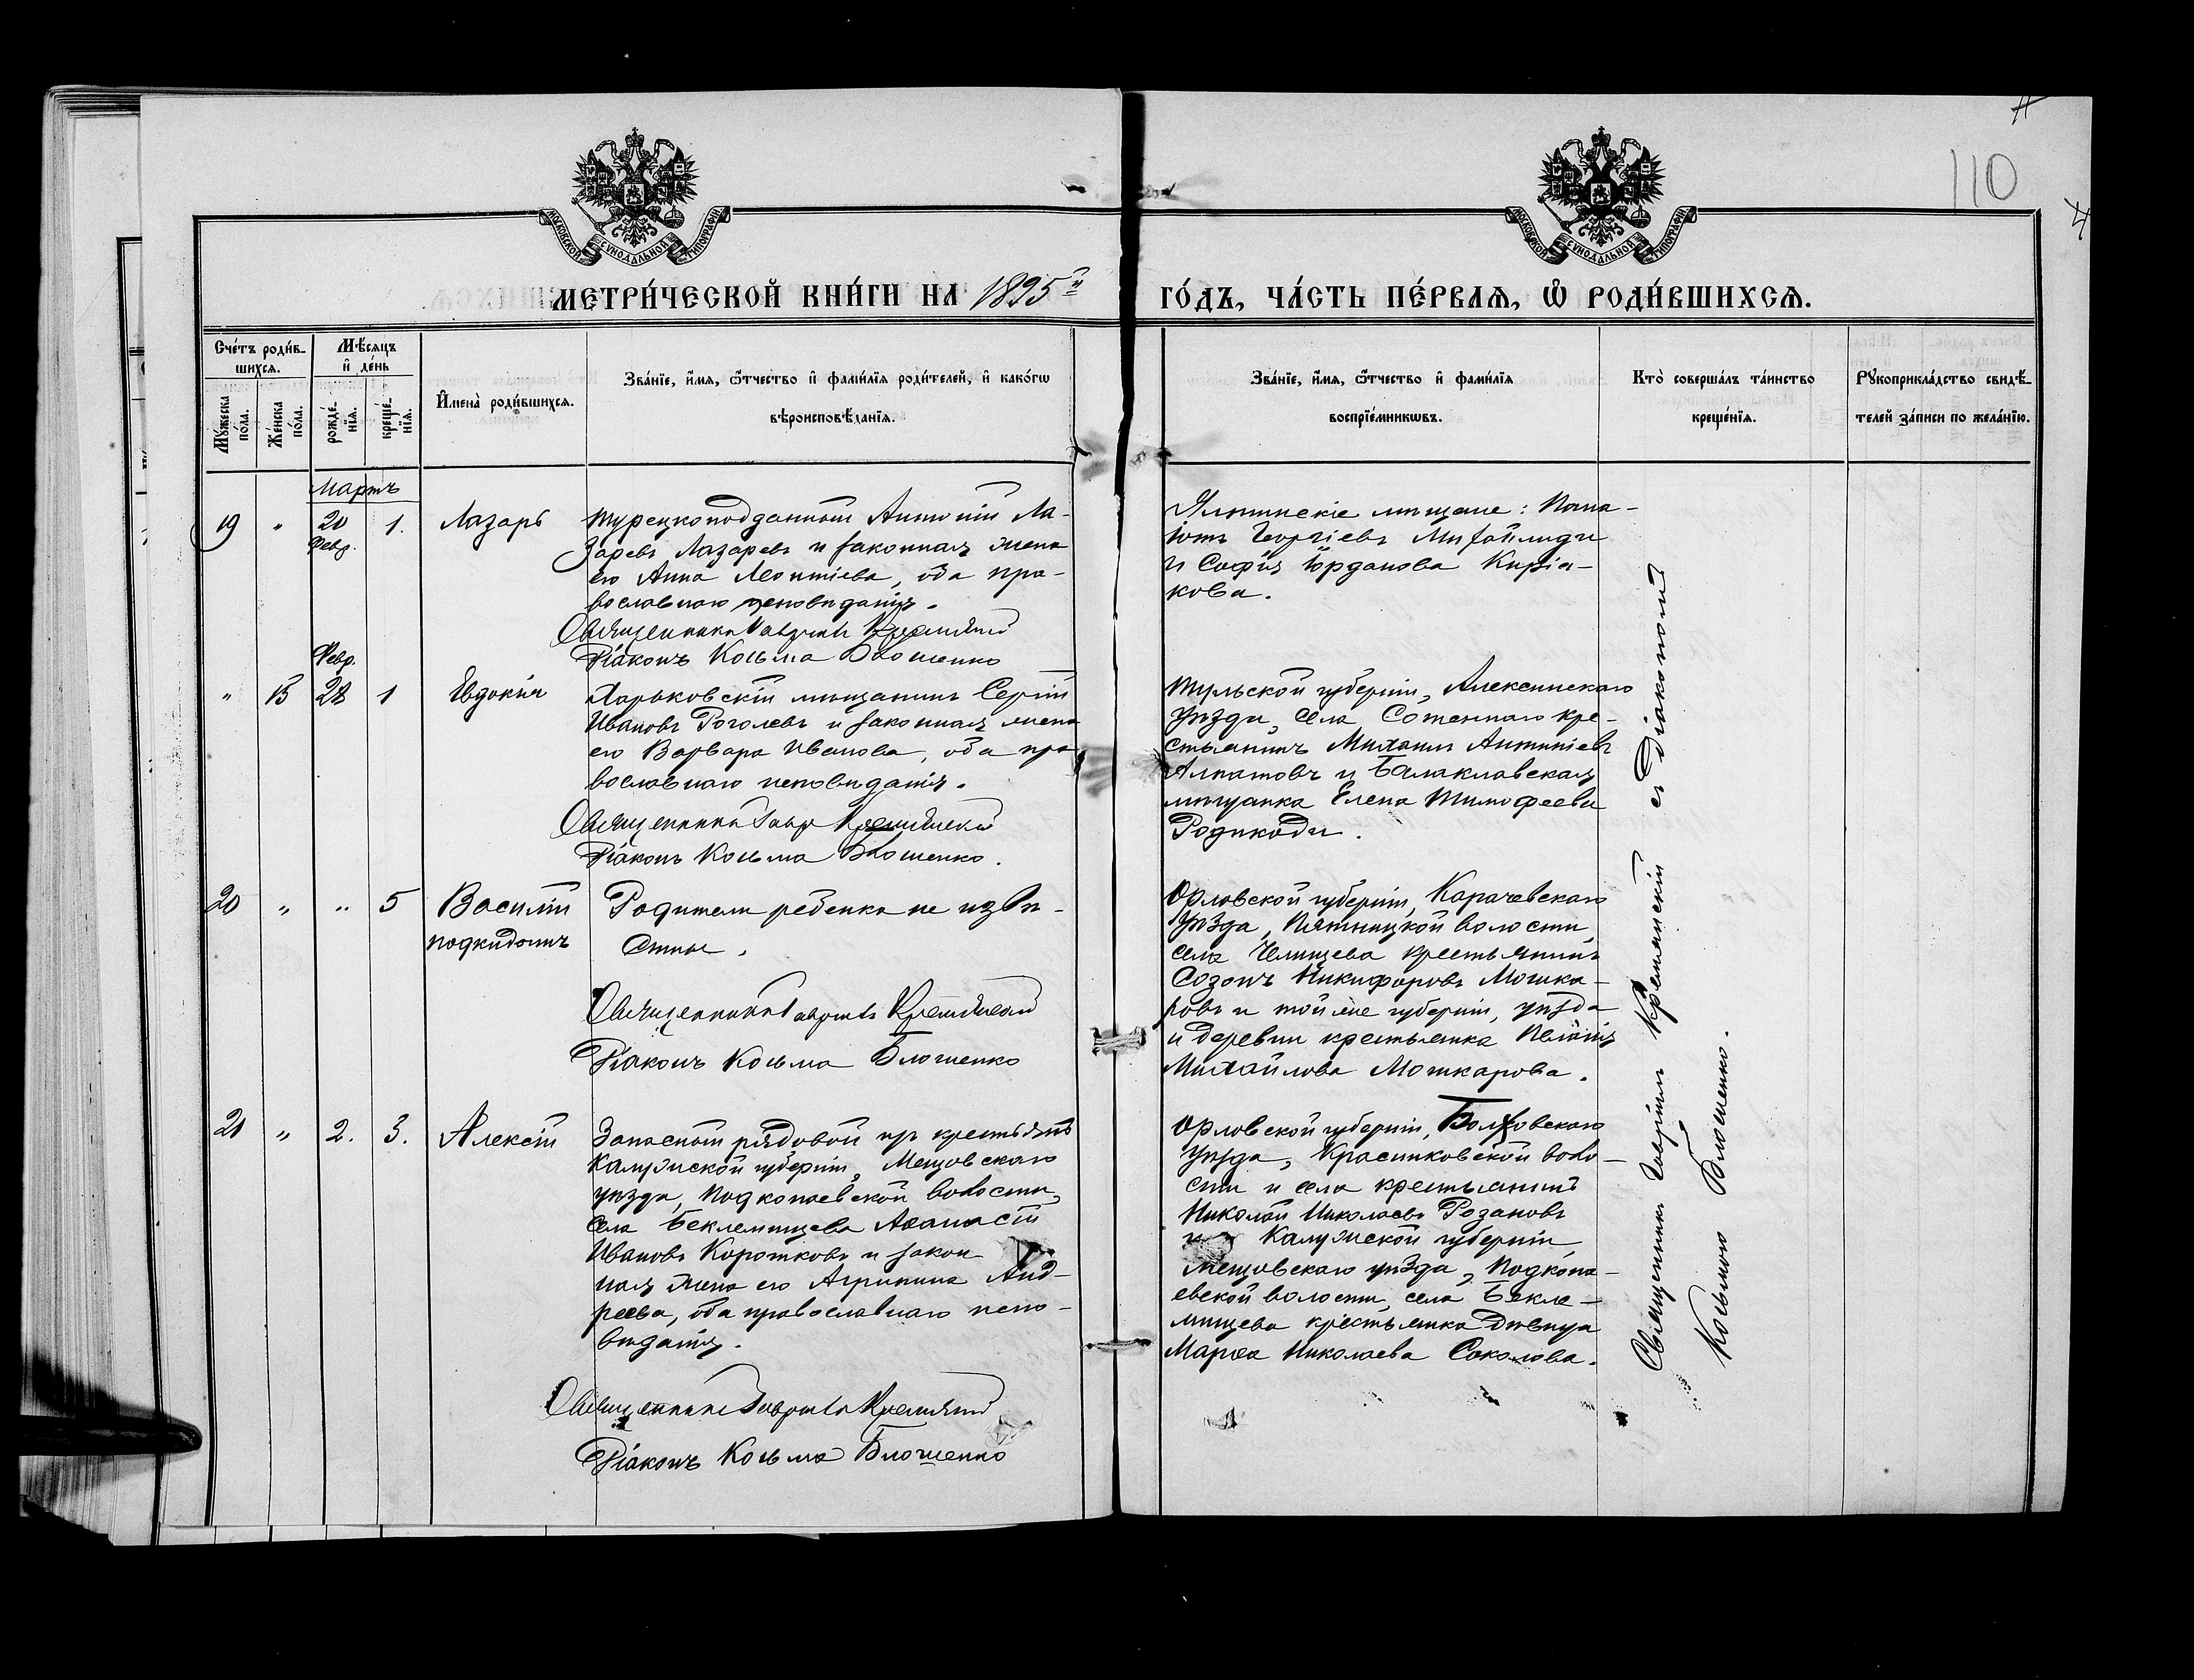 110
МОСКОВСКОЙ СѴНОДАЛЬНОЙ ТИПОГРАФІИ
МОСКОВСКОЙ СѴНОДАЛЬНОЙ ТИПОГРАФІИ
МЕТРИ́ЧЕСКОЙ КНИ́ГИ НА 1895й ГО́ДЪ, ЧА́СТЬ ПЕ́РВАѦ, Ѽ РОДИ́ВШИХСѦ.
Сче́тъ роди́в-
шихсѧ.
Мꙋ́жеска по́ла.
Же́нска по́ла.
Мѣ́сѧцъ
и҆ де́нь
рожде́-
нїѧ.
креще́-
нїѧ.
И҆мена̀ роди́вшихсѧ.
Зва́нїе, и҆́мѧ, ѻ҆́тчество и҆ фами́лїѧ роди́телей, и҆ како́гѡ
вѣроисповѣ́данїѧ.
Зва́нїе, и҆́мѧ, ѻ҆́тчество и҆ фами́лїѧ
воспрїе́мникѡвъ.
Кто̀ соверша́лъ та́инство
креще́нїѧ.
Рꙋкоприкла́дство свидѣ́-
телей за́писи по жела́нїю.
Мартъ
19 " 20 Февр. 1. Лазарь
Турецкоподданный Антоній Ла-
заревъ Лазаревъ и законная жена
его Анна Леонтіева, оба пра-
вославнаго исповѣданія.
Священникъ Гавріилъ
Діаконъ Козьма Блошенко
Ялтинскіе мѣщане: Пана-
іотъ Георгіевъ Михайлиди
и Софія Іорданова Киріа-
кова.
" 15 Февр. 28 1 Евдокія
Харьковскій мѣщанинъ Сергій
Ивановъ Гоголевъ и законная жена
его Варвара Иванова, оба пра
вославнаго исповѣданія.
Священникъ Гавр
Діаконъ Козьма Блошенко.
Тульской губерніи, Алексинскаго
уѣзда, села Сотеннаго кре-
стьянинъ Михаилъ
Алпатовъ и Балаклавская
мѣщанка Елена Тимофеева
20 " " 5 Василій
подкидышъ
Родители ребенка не извѣ-
стны.
Священникъ Гавріилъ
Діаконъ Козьма Блошенко
Орловской губерніи, Карачевскаго
уѣзда, Пятницкой волости,
села крестьянинъ
Созонъ Никифоровъ Мошка-
ровъ и той же губерніи, уѣзда
и деревни крестьянка
Михайлова Мошкарова.
21 " 2. 3. Алексій
Запасный рядовой изъ крестьянъ
Калужской губерніи, Мещовскаго
уѣзда, Подкопаевской волости,
села Беклемищева Аѳанасій
Ивановъ Коротковъ и закон
ная жена его Агрипина Анд-
реева, оба православнаго испо-
вѣданія.
Священникъ Гавріилъ
Діаконъ Козьма Блошенко
Орловской губерніи, Болховскаго
уѣзда, Красниковской воло-
сти и села крестьянинъ
Николай Николаевъ Розановъ
и Калужской губерніи,
Мещовскаго уѣзда, Подкопа-
евской волости, села Бекле-
мищева крестьянка дѣвица
Марѳа Николаева Соколова.
Священникъ Гавріилъ Кремянскій съ Діакономъ
Козьмою Блошенко.